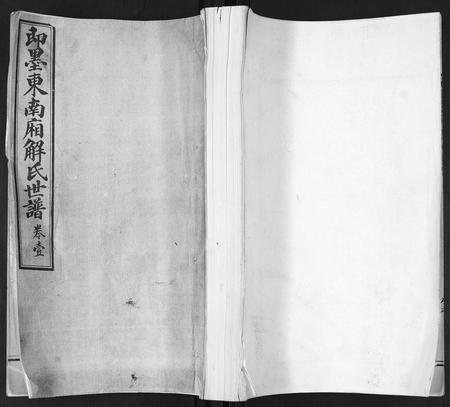 即墨東南廂解氏世譜
卷壹